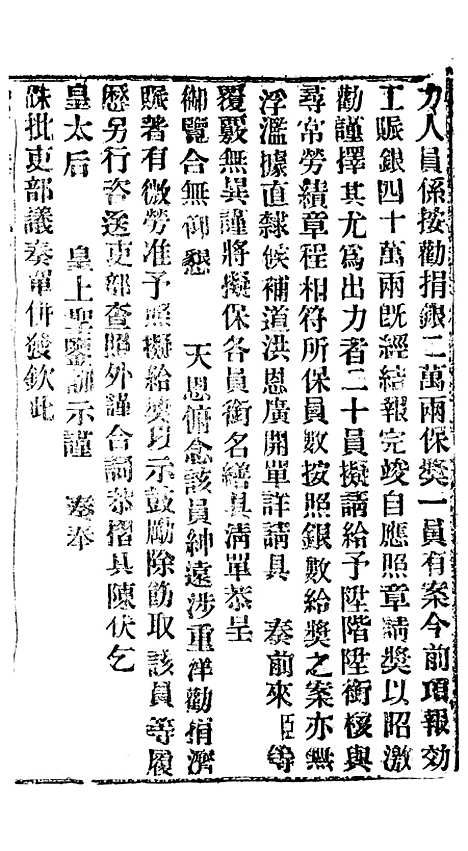 力人員係按勸捐銀二萬兩保獎一員有案今前項報効
工賑銀四十萬兩既經結報完竣自應照章請獎以昭激
勸謹擇其尤爲出力者二十員擬請給予陞階陞銜核與
尋常勞績章程相符所保員數按照銀數給獎之案亦無
浮濫據直隸候補道洪恩廣開單詳請具 奏前來臣等
覆覈無異謹將擬保各員銜名繕具清單恭呈
御覽合無仰懇 天恩俯念該員紳遠涉重洋勸捐濟
賑著有微勞准予照擬給獎以示鼓勵除飭取該員等履
歷另行咨送吏部查照外謹合詞恭摺具陳伏乞
皇太后 皇上聖鑒訓示謹 奏奉
硃批吏部議奏單併發欽此